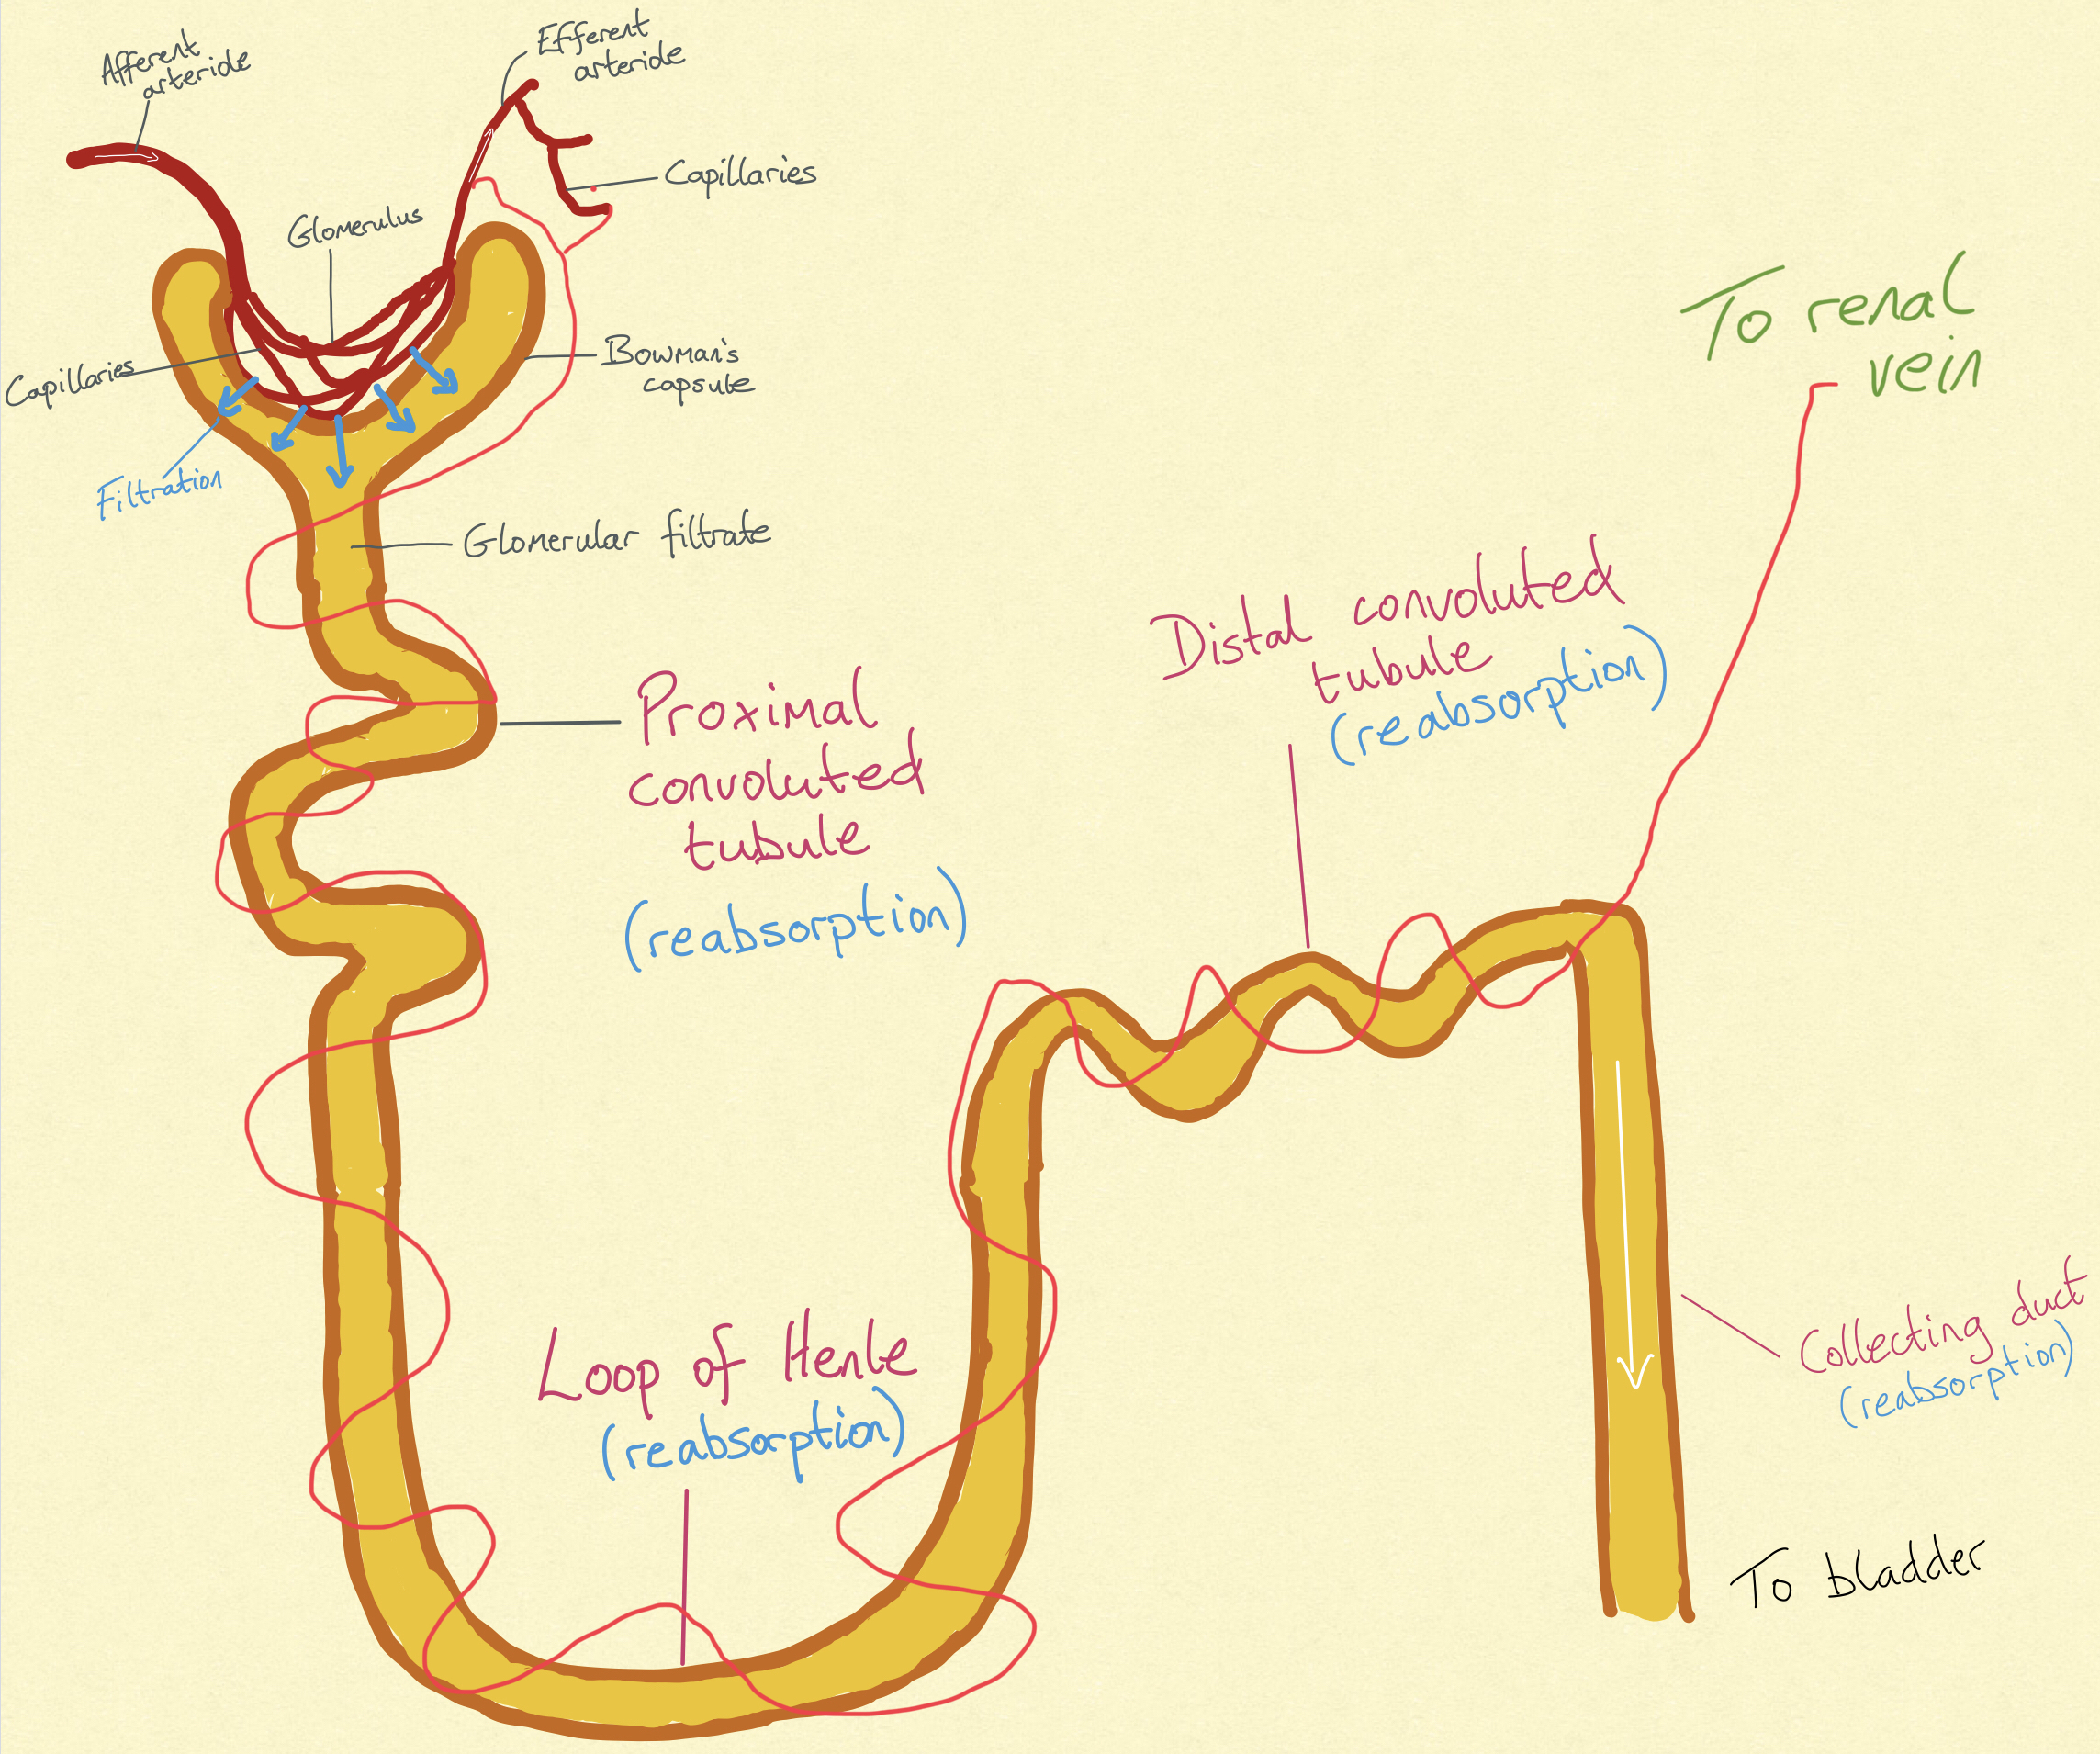 Afferent
arteriole
Efferent
arteriole
Capillaries
Glomerulus
Capillaries
Bowman's
capsule
Filtration
Glomerular filtrate
To renal
vein
Proximal
convoluted
tubule
(reabsorption)
Distal convoluted
tubule
(reabsorption)
Loop of Henle
(reabsorption)
Collecting duct
(reabsorption)
To bladder